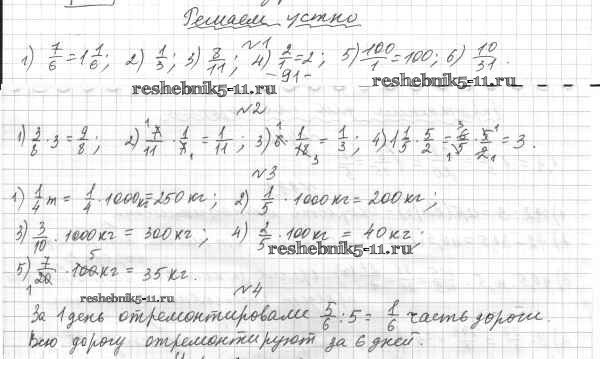 Решаем устно
№1
1) 7/6 = 1 1/6; 2) 1/3; 3) 8/11; 4) 2/1 = 2; 5) 100/1 = 100; 6) 10/31.
- 91 -
reshebnik5-11.ru reshebnik5-11.ru
№2
1) 3/8 · 3 = 9/8; 2) 7/11 · 1/7 = 1/11; 3) 6 · 1/18 = 1/3; 4) 1 1/5 · 5/2 = 6/5 · 5/2 = 3.
№3
1) 1/4 т = 1/4 · 1000 кг = 250 кг; 2) 1/5 · 1000 кг = 200 кг;
3) 3/10 · 1000 кг = 300 кг; 4) 2/5 · 100 кг = 40 кг;
reshebnik5-11.ru
5) 7/20 · 100 кг = 35 кг.
reshebnik5-11.ru
№4
За 1 день отремонтировали 5/6 : 5 = 1/6 часть дороги.
Всю дорогу отремонтируют за 6 дней.